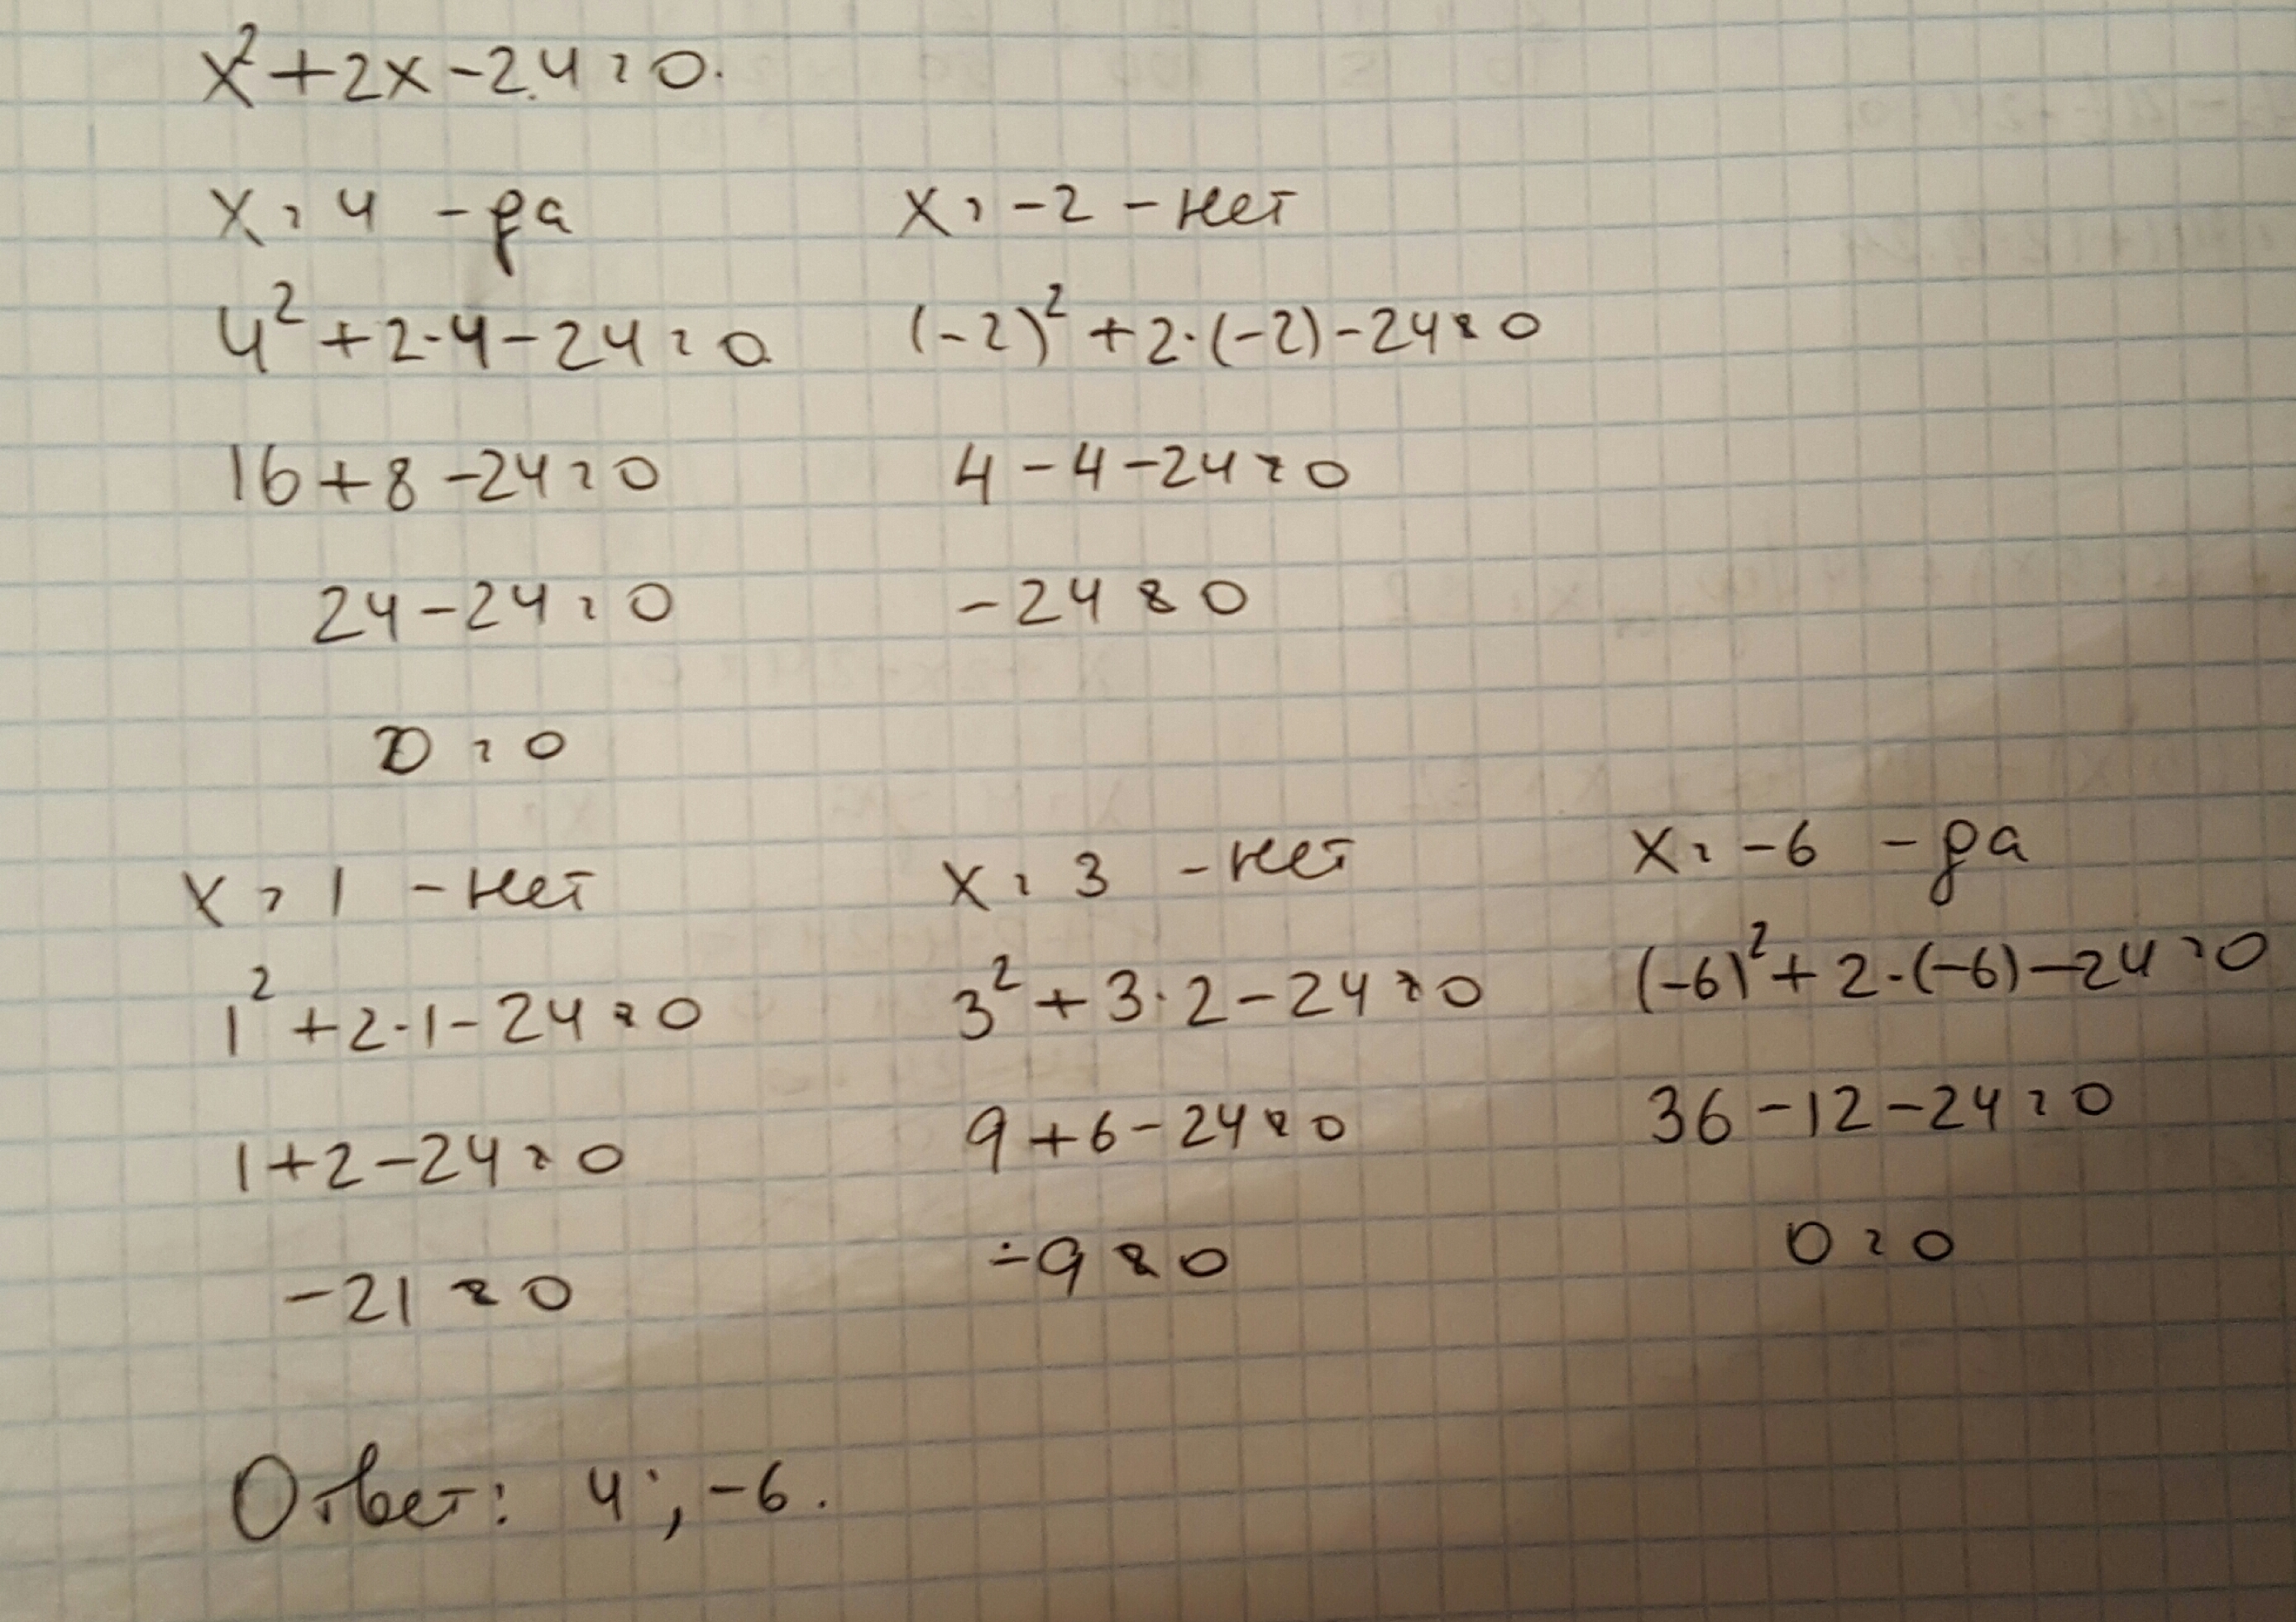 x²+2x-24=0.
x=4 -да
4²+2·4-24=0
16+8-24=0
24-24=0
0=0
x=-2 -нет
(-2)²+2·(-2)-24≠0
4-4-24≠0
-24≠0
x=1 -нет
1²+2·1-24≠0
1+2-24≠0
-21≠0
x=3 -нет
3²+3·2-24≠0
9+6-24≠0
-9≠0
x=-6 -да
(-6)²+2·(-6)-24=0
36-12-24=0
0=0
Ответ: 4; -6.